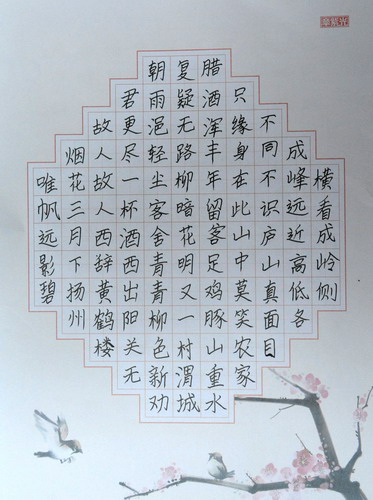 横看成岭侧
成峰远近高低各
不同不识庐山真面目
只缘身在此山中莫笑农家
腊酒浑丰年留客足鸡豚山重水
复疑无路柳暗花明又一村渭城
朝雨浥轻尘客舍青青柳色新劝
君更尽一杯酒西出阳关无
故人故人西辞黄鹤楼
烟花三月下扬州
唯帆远影碧